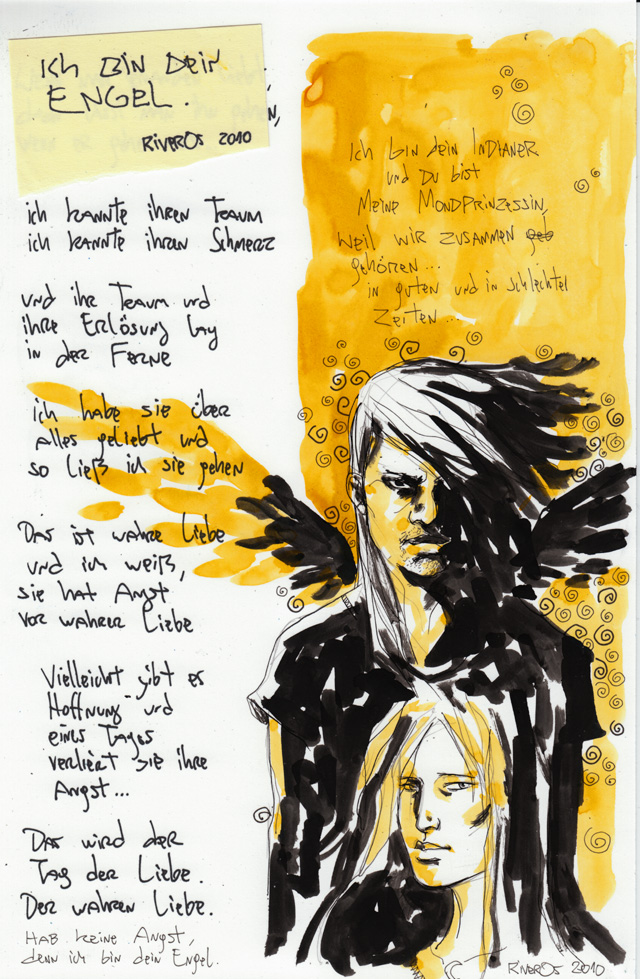 Ich bin dein
Engel.
RiverOs 2010
ich kannte ihren Traum
ich kannte ihren Schmerz
und ihr Traum und
ihre Erlösung lag
in der Ferne
ich habe sie über
alles geliebt und
so ließ ich sie gehen
Das ist wahre Liebe
und ich weiß,
sie hat Angst
vor wahrer Liebe
Vielleicht gibt es
Hoffnung und
eines Tages
verliert sie ihre
Angst...
Das wird der
Tag der Liebe.
Der wahren Liebe.
Hab keine Angst,
denn ich bin dein Engel.
Ich bin dein Indianer
und du bist
Meine Mondprinzessin,
weil wir zusammen geh
gehören...
in guten und in schlechten
Zeiten...
RiverOs 2010